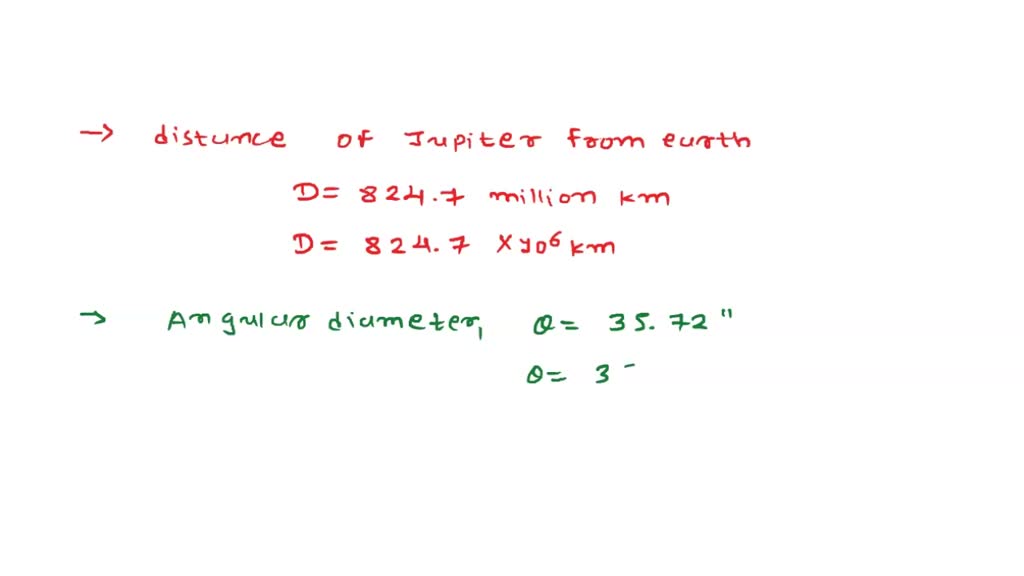 → distance of Jupiter from earth
D= 824.7 million km
D= 824.7 X 10⁶ km
→ Angular diameter, θ= 35.72"
θ= 3